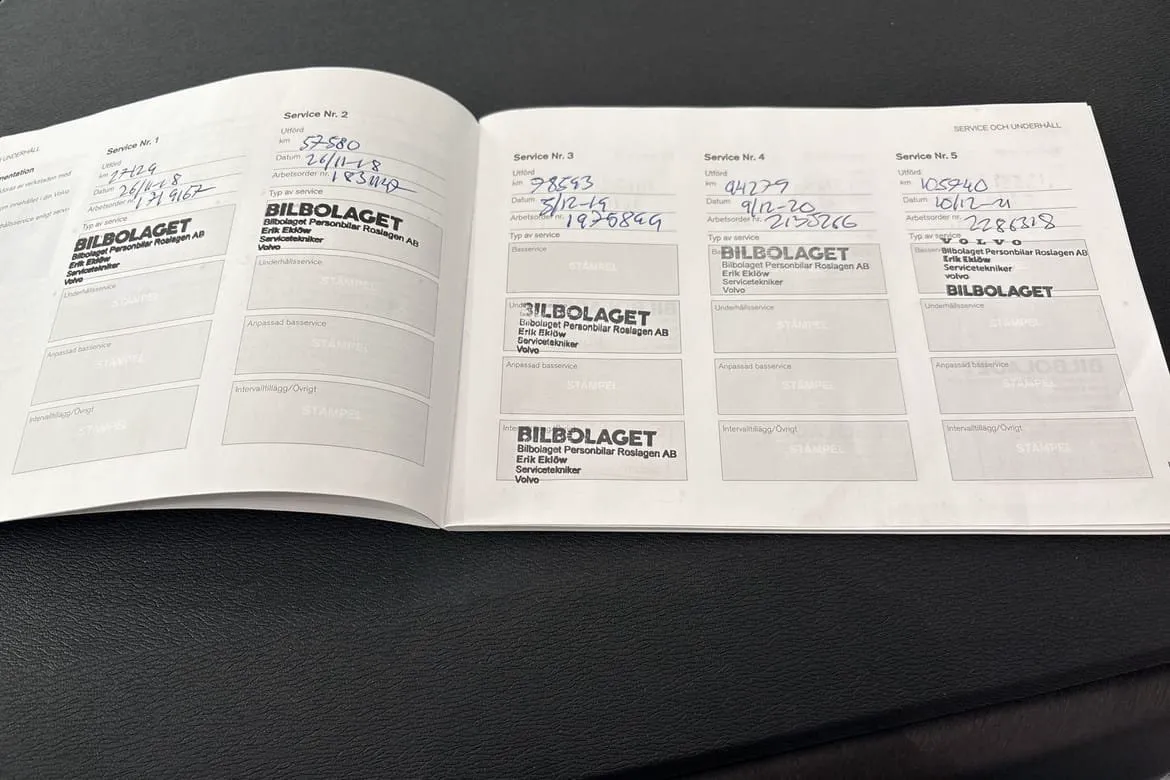 UNDERHÅLL
mentation
Service Nr. 1
Utförd
km 27129
Datum 26/11-18
Arbetsorder nr. 1719167
Typ av service
BILBOLAGET
Bilbolaget Personbilar Roslagen AB
Erik Eklöw
Servicetekniker
Volvo
Underhållsservice
STÄMPEL
Anpassad basservice
STÄMPEL
Intervalltillägg/Övrigt
STÄMPEL
Service Nr. 2
Utförd
km 57580
Datum 26/11-18
Arbetsorder nr.
Typ av service
BILBOLAGET
Bilbolaget Personbilar Roslagen AB
Erik Eklöw
Servicetekniker
Volvo
Underhållsservice
STÄMPEL
Anpassad basservice
STÄMPEL
Intervalltillägg/Övrigt
STÄMPEL
SERVICE OCH UNDERHÅLL
Service Nr. 3
Utförd
km 78593
Datum 5/12-19
Arbetsorder nr. 1975899
Typ av service
Basservice
STÄMPEL
BILBOLAGET
Bilbolaget Personbilar Roslagen AB
Erik Eklöw
Servicetekniker
Volvo
Anpassad basservice
STÄMPEL
BILBOLAGET
Bilbolaget Personbilar Roslagen AB
Erik Eklöw
Servicetekniker
Volvo
Service Nr. 4
Utförd
km 94279
Datum 9/12-20
Arbetsorder nr. 2135266
Typ av service
BILBOLAGET
Bilbolaget Personbilar Roslagen AB
Erik Eklöw
Servicetekniker
Volvo
Underhållsservice
STÄMPEL
Anpassad basservice
STÄMPEL
Intervalltillägg/Övrigt
STÄMPEL
Service Nr. 5
Utförd
km 105940
Datum 10/12-21
Arbetsorder nr. 2286318
Typ av service
VOLVO
Bilbolaget Personbilar Roslagen AB
Erik Eklöw
Servicetekniker
Volvo
BILBOLAGET
Underhållsservice
STÄMPEL
Anpassad basservice
STÄMPEL
Intervalltillägg/Övrigt
STÄMPEL